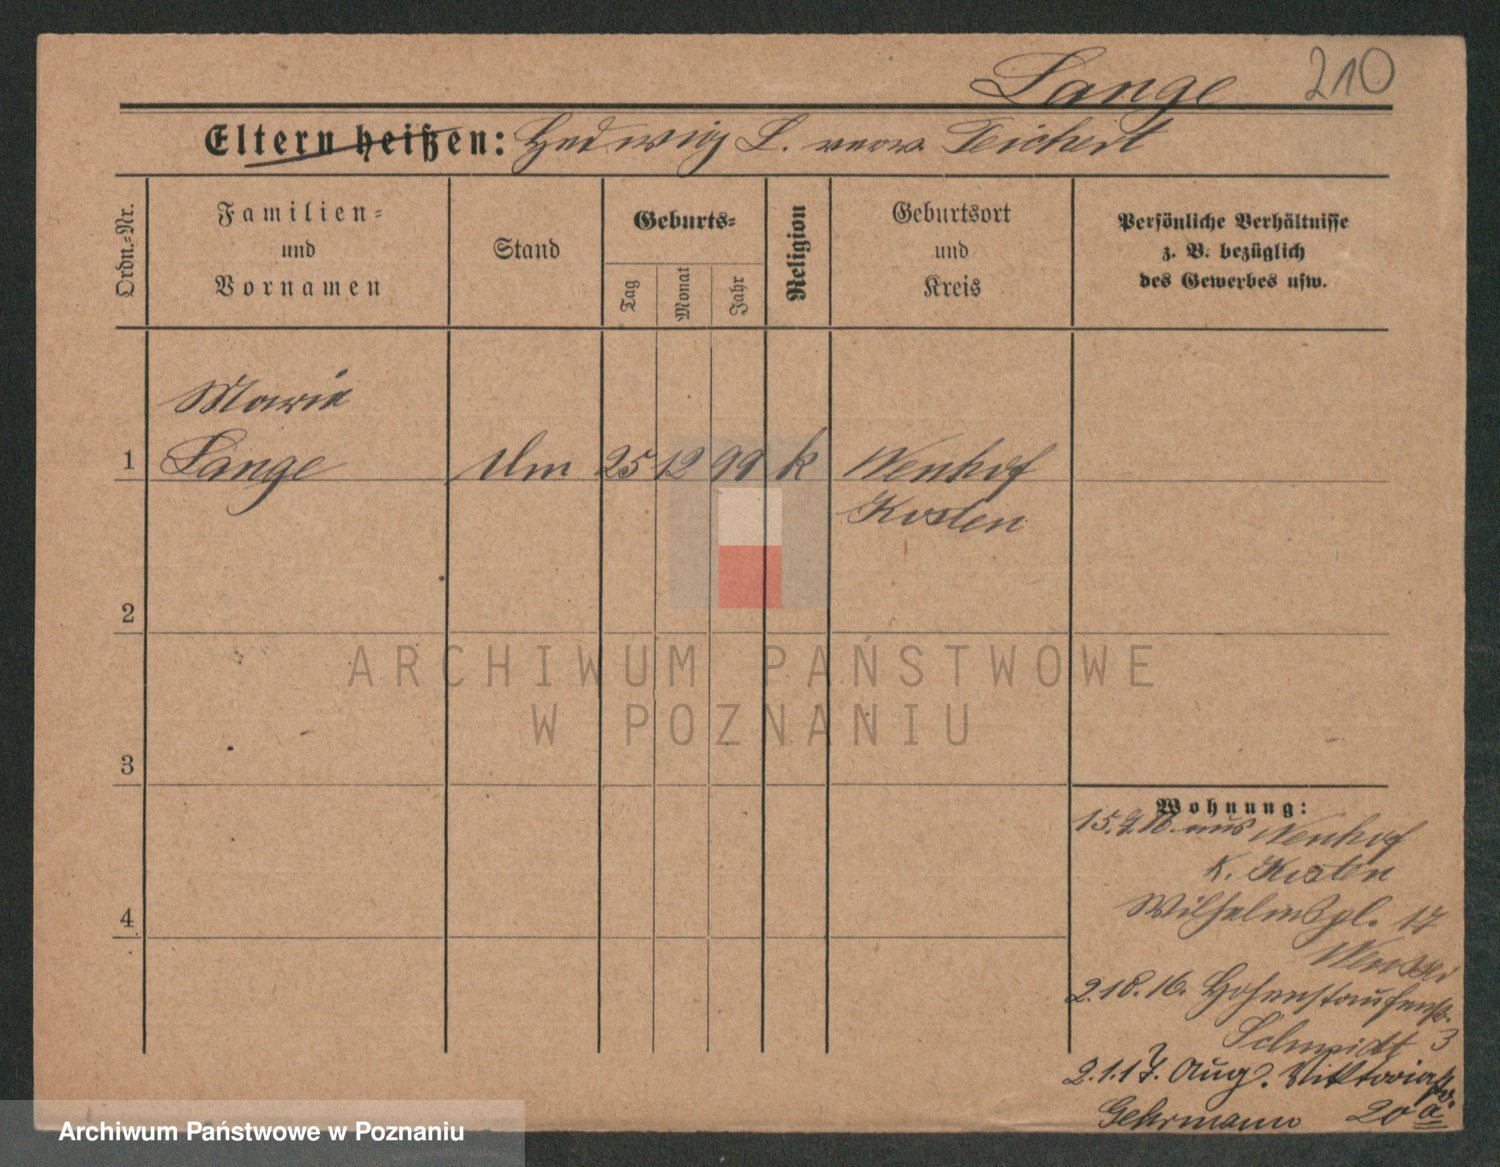 Lange 210
Eltern heißen: Hedwig L. verw. Teichert
Ordn.-Nr.
Familien-
und
Vornamen
Stand
Geburts-
Tag
Monat
Jahr
Religion
Geburtsort
und
Kreis
Persönliche Verhältnisse
z. B. bezüglich
des Gewerbes usw.
Marie
1 Lange 25 12 99 k Neuhof
Kosten
2
3
4
Wohnung:
15.9.16. aus Neuhof
K. Kosten
Wilhelmspl. 17
2.10.16. Hohenstaufenstr.
Schmidt 3
2.1.17. Aug. Viktoriastr.
Gehrmann 20 a
ARCHIWUM PAŃSTWOWE
W POZNANIU
Archiwum Państwowe w Poznaniu